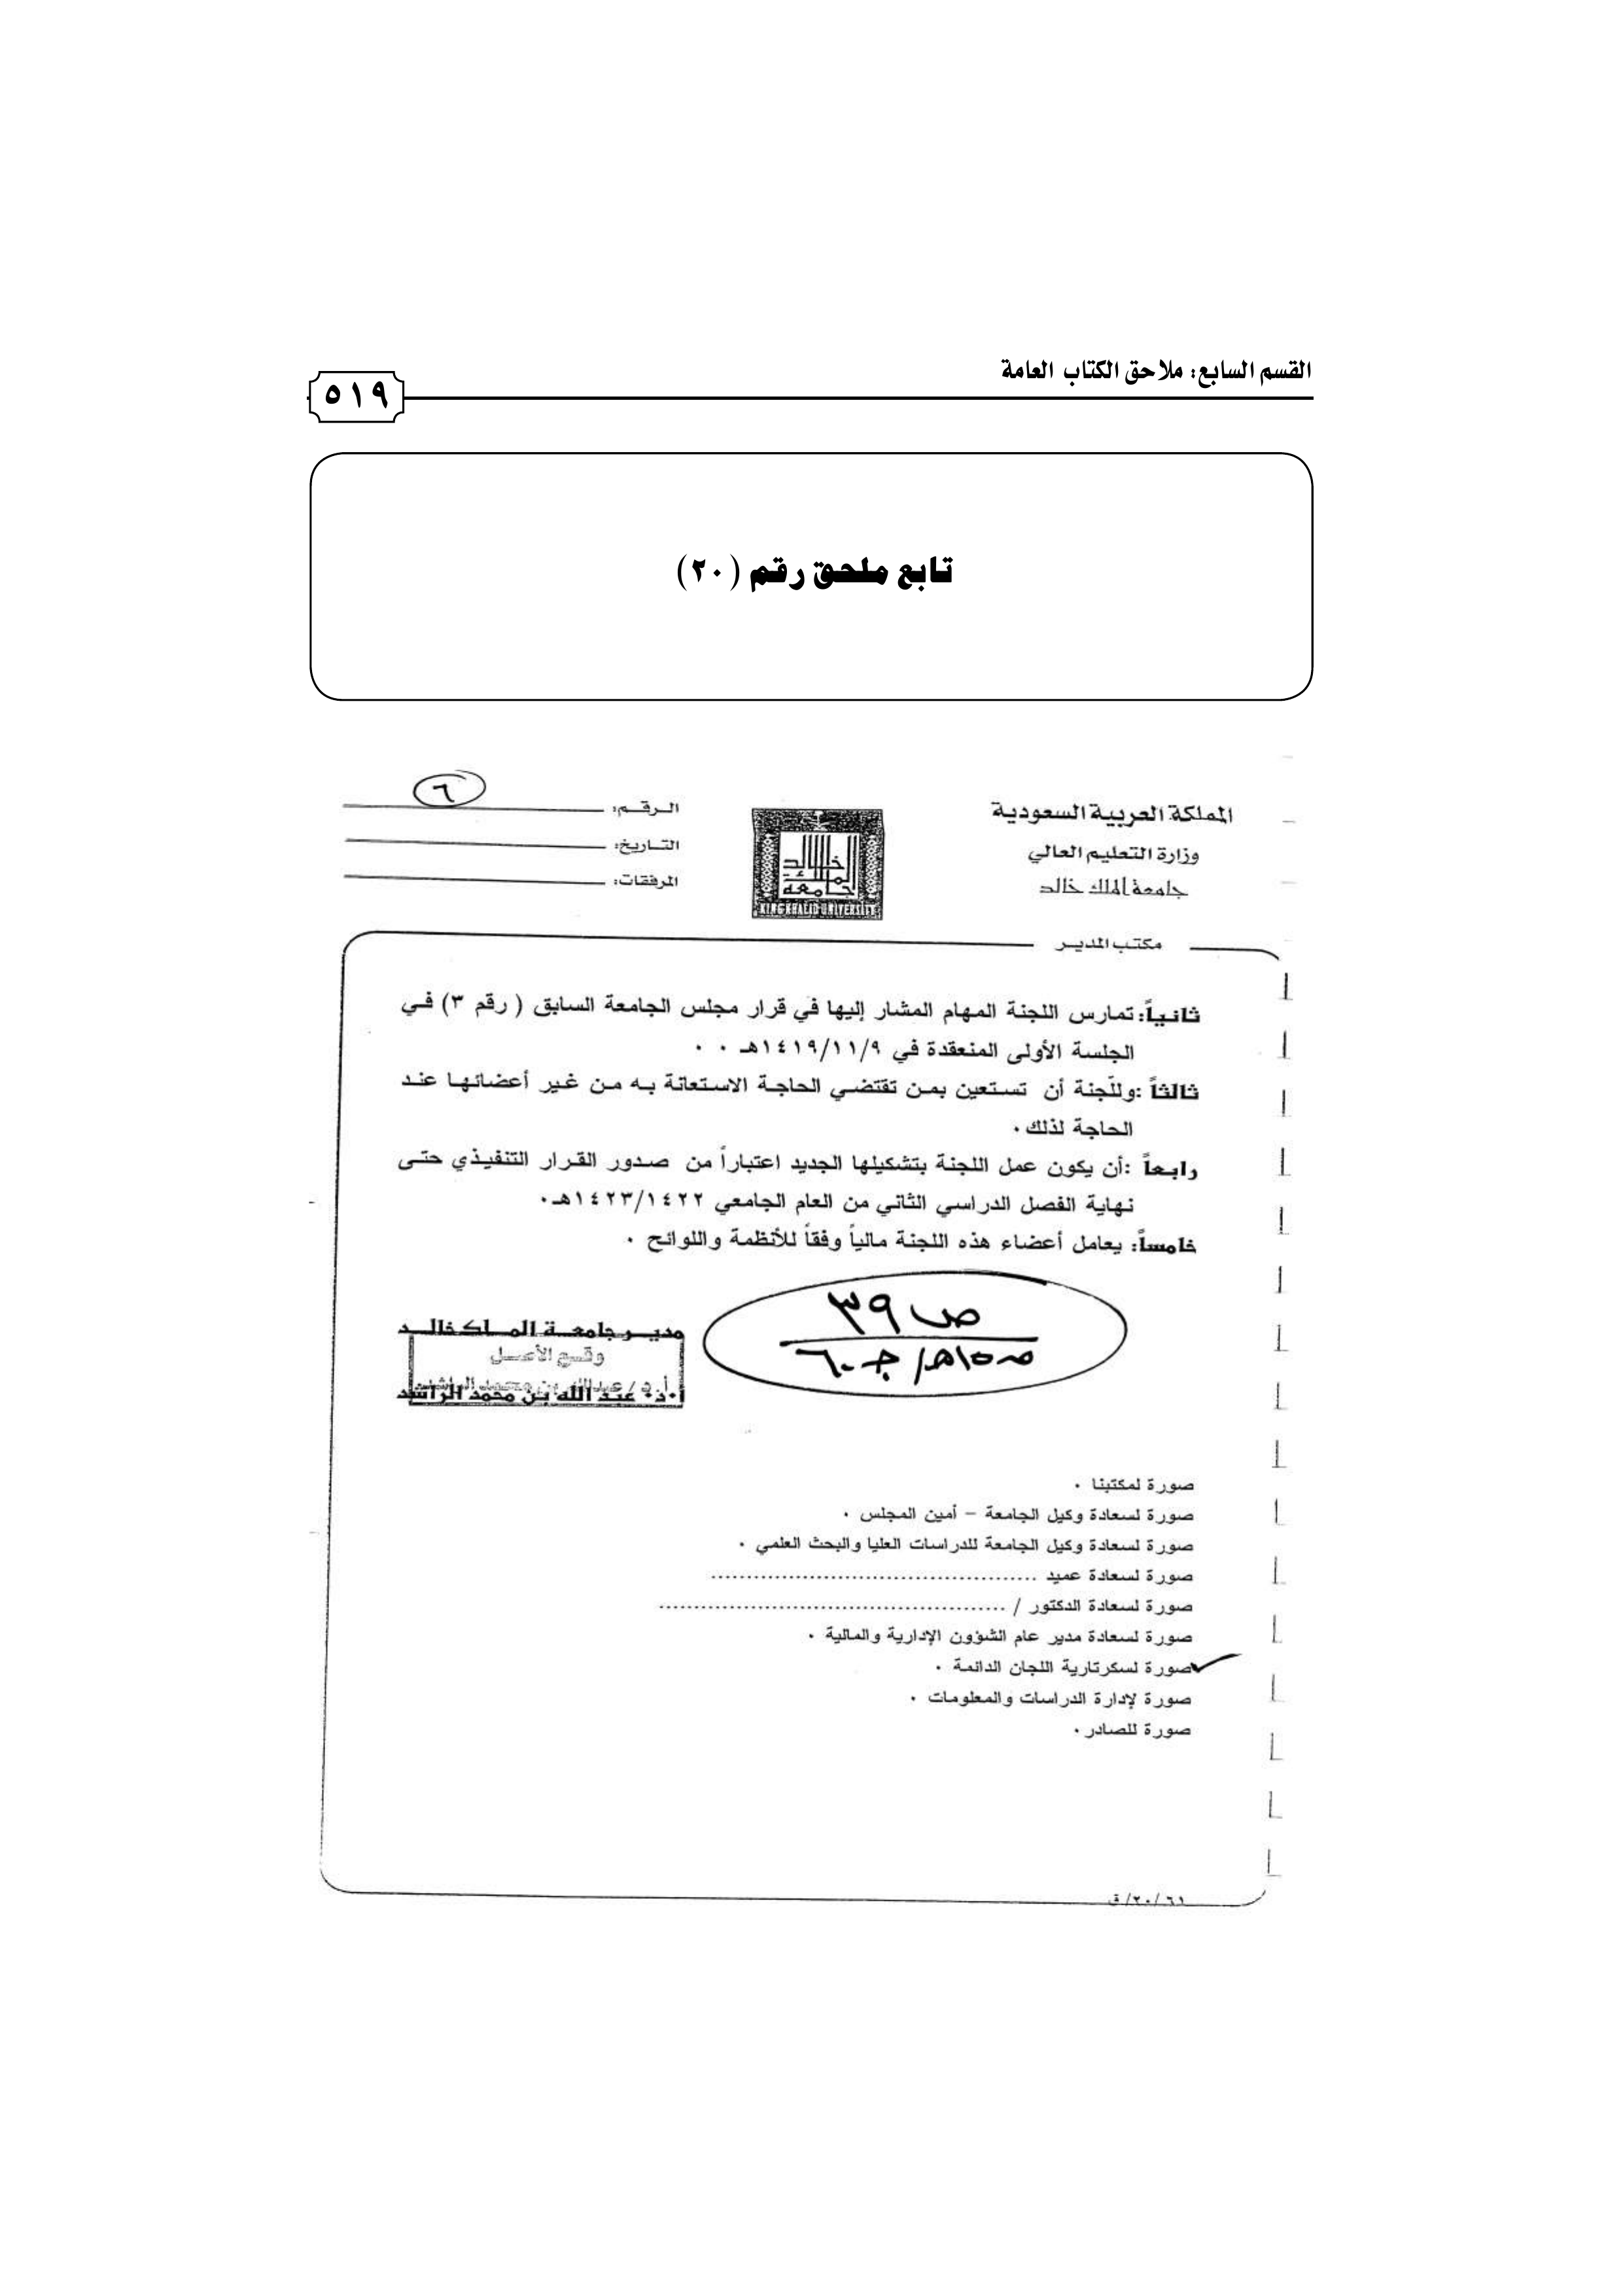 القسم السابع: ملاحق الكتاب العامة
٥١٩
تابع ملحق رقم (٢٠)
المملكة العربية السعودية
وزارة التعليم العالي
جامعة الملك خالد
جامعة الملك خالد
KING KHALID UNIVERSITY
الرقم: ٦
التاريخ:
المرفقات:
مكتب المدير
ثانياً: تمارس اللجنة المهام المشار إليها في قرار مجلس الجامعة السابق ( رقم ٣) في
الجلسة الأولى المنعقدة في ١٤١٩/١١/٩هـ ٠ ٠
ثالثاً :وللّجنة أن تستعين بمن تقتضي الحاجة الاستعانة به من غير أعضائها عند
الحاجة لذلك ٠
رابعاً :أن يكون عمل اللجنة بتشكيلها الجديد اعتباراً من صدور القرار التنفيذي حتى
نهاية الفصل الدراسي الثاني من العام الجامعي ١٤٢٣/١٤٢٢هـ٠
خامساً: يعامل أعضاء هذه اللجنة مالياً وفقاً للأنظمة واللوائح ٠
ص ٣٩
مدير جامعة الملك خالد
وقع الأصل
أ.د / عبدالله بن محمد الراشد
أ٠د٠ عبد الله بن محمد الراشد
صورة لمكتبنا ٠
صورة لسعادة وكيل الجامعة – أمين المجلس ٠
صورة لسعادة وكيل الجامعة للدراسات العليا والبحث العلمي ٠
صورة لسعادة عميد ..............................................
صورة لسعادة الدكتور / ................................................
صورة لسعادة مدير عام الشؤون الإدارية والمالية ٠
صورة لسكرتارية اللجان الدائمة ٠
صورة لإدارة الدراسات والمعلومات ٠
صورة للصادر ٠
٦١/٢٠/ق